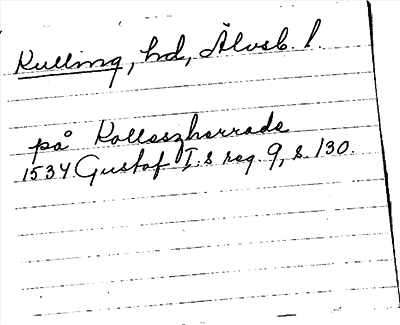 Kulling, hd, Älvsb. l.
på Kollaszharrade
1534 Gustaf I:s reg. 9, s. 130.